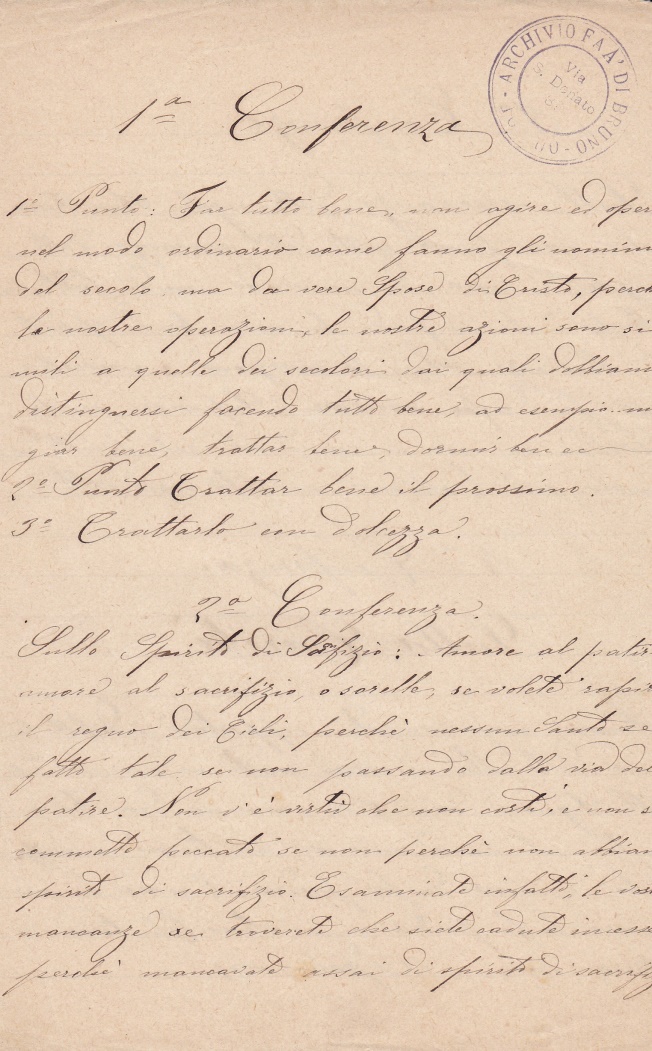 ARCHIVIO FAÀ DI BRUNO
Via
S. Donato
1ª Conferenza
1º Punto: Far tutto bene, non agire ed oper
nel modo ordinario come fanno gli uomini
del secolo ma da vere Spose di Cristo, perch
le nostre operazioni, le nostre azioni sono si
mili a quelle dei secolari dai quali dobbiam
distinguersi facendo tutto bene, ad esempio m
giar bene, trattar bene, dormir ben ec
2º Punto Trattar bene il prossimo.
3º Trattarlo con dolcezza.
2ª Conferenza.
Sullo Spirito di Safifizio: Amore al patir
amore al sacrifizio, o sorelle, se volete rapir
il regno dei Cieli, perchè nessun Santo se
fatto tale se non passando dalla via del
patire. Non v'è virtù che non costi, e non s
commetto peccato se non perchè non abbiam
spirito di sacrifizio. Esaminate infatti, le vos
mancanze se troverete che siete cadute in esse
perchè mancavate assai di spirito di sacrifiz